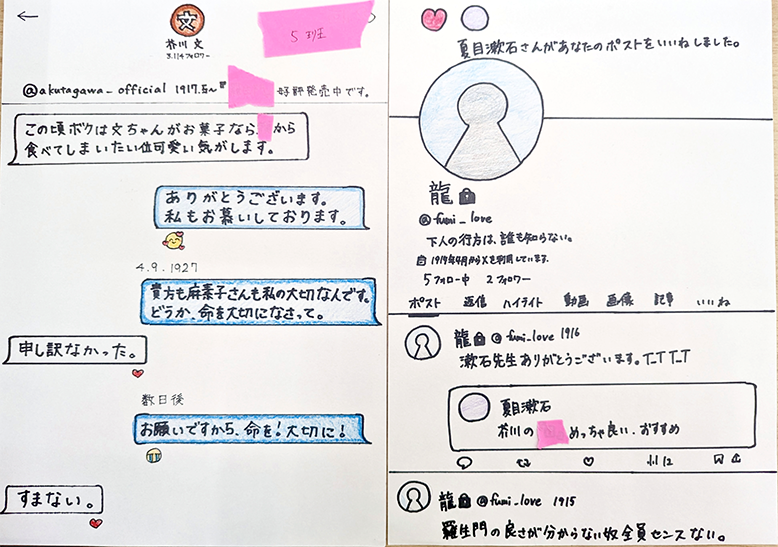 文
芥川 文
3,114フォロワー
5班
@akutagawa_official 1917.5~『
好評発売中です。
この頃ボクは文ちゃんがお菓子なら
から
食べてしまいたい位可愛い気がします。
ありがとうございます。
私もお慕いしております。
4.9.1927
貴方も麻素子さんも私の大切なんです。
どうか、命を大切になさって。
申し訳なかった。
数日後
お願いですから、命を!大切に!
すまない。
夏目漱石さんがあなたのポストをいいねしました。
龍
@fumi_love
下人の行方は、誰も知らない。
1914年4月からXを利用しています。
5フォロー中 2フォロワー
ポスト 返信 ハイライト 動画 画像 記事 いいね
龍 @fumi_love 1916
漱石先生ありがとうございます。T_T T_T
夏目漱石
芥川の
めっちゃ良い、おすすめ
12
龍 @fumi_love 1915
羅生門の良さが分からない奴全員センスない。